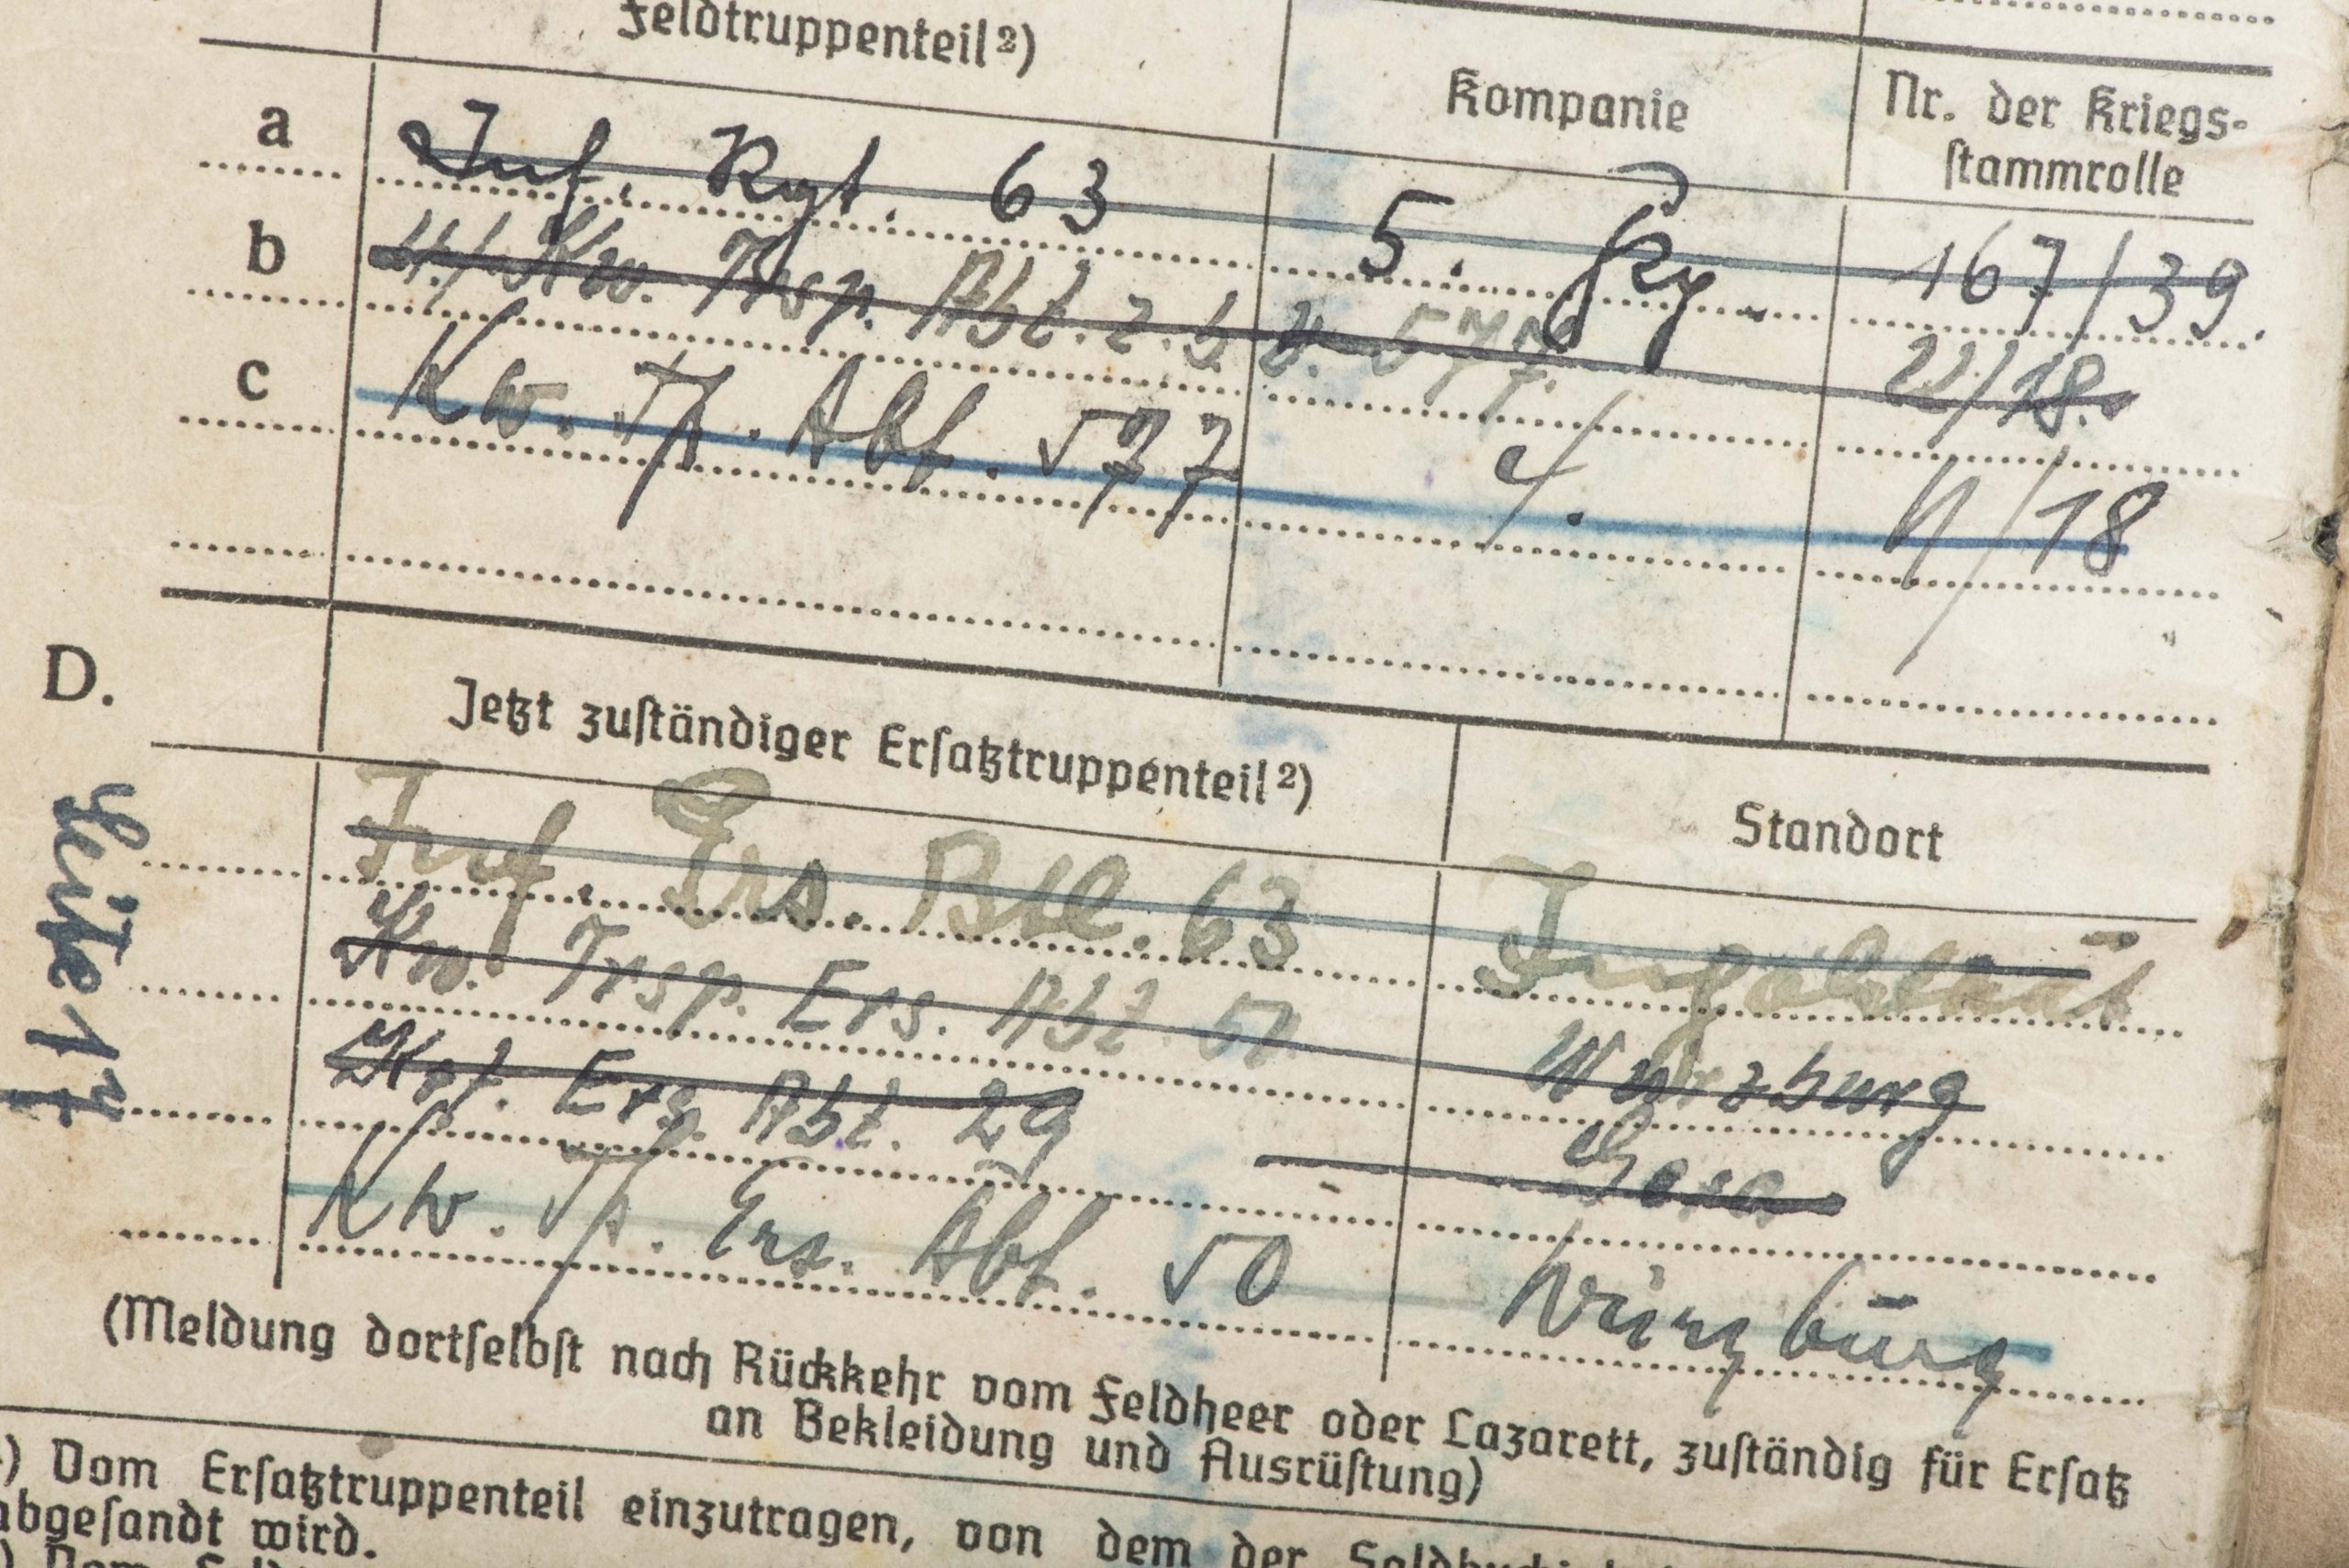 Feldtruppenteil²) Kompanie Nr. der Kriegs-
stammrolle
a Inf. Rgt. 63 5. Kp. 167/39.
b 4./ Kw. Trsp. Abt. z. b. V. 577. 22/18.
c Kw. Tp. Abt. 577 4. 4/18
D. Jetzt zuständiger Ersatztruppenteil²) Standort
Inf. Ers. Btl. 63 Ingolstadt
Kw. Trsp. Ers. Abt. Würzburg
Krf. Ers. Abt. 29 Gera
Kw. Tp. Ers. Abt. 50 Würzburg
Seite 17
(Meldung dortselbst nach Rückkehr vom Feldheer oder Lazarett, zuständig für Ersatz
an Bekleidung und Ausrüstung)
) Vom Ersatztruppenteil einzutragen, von dem der
abgesandt wird.